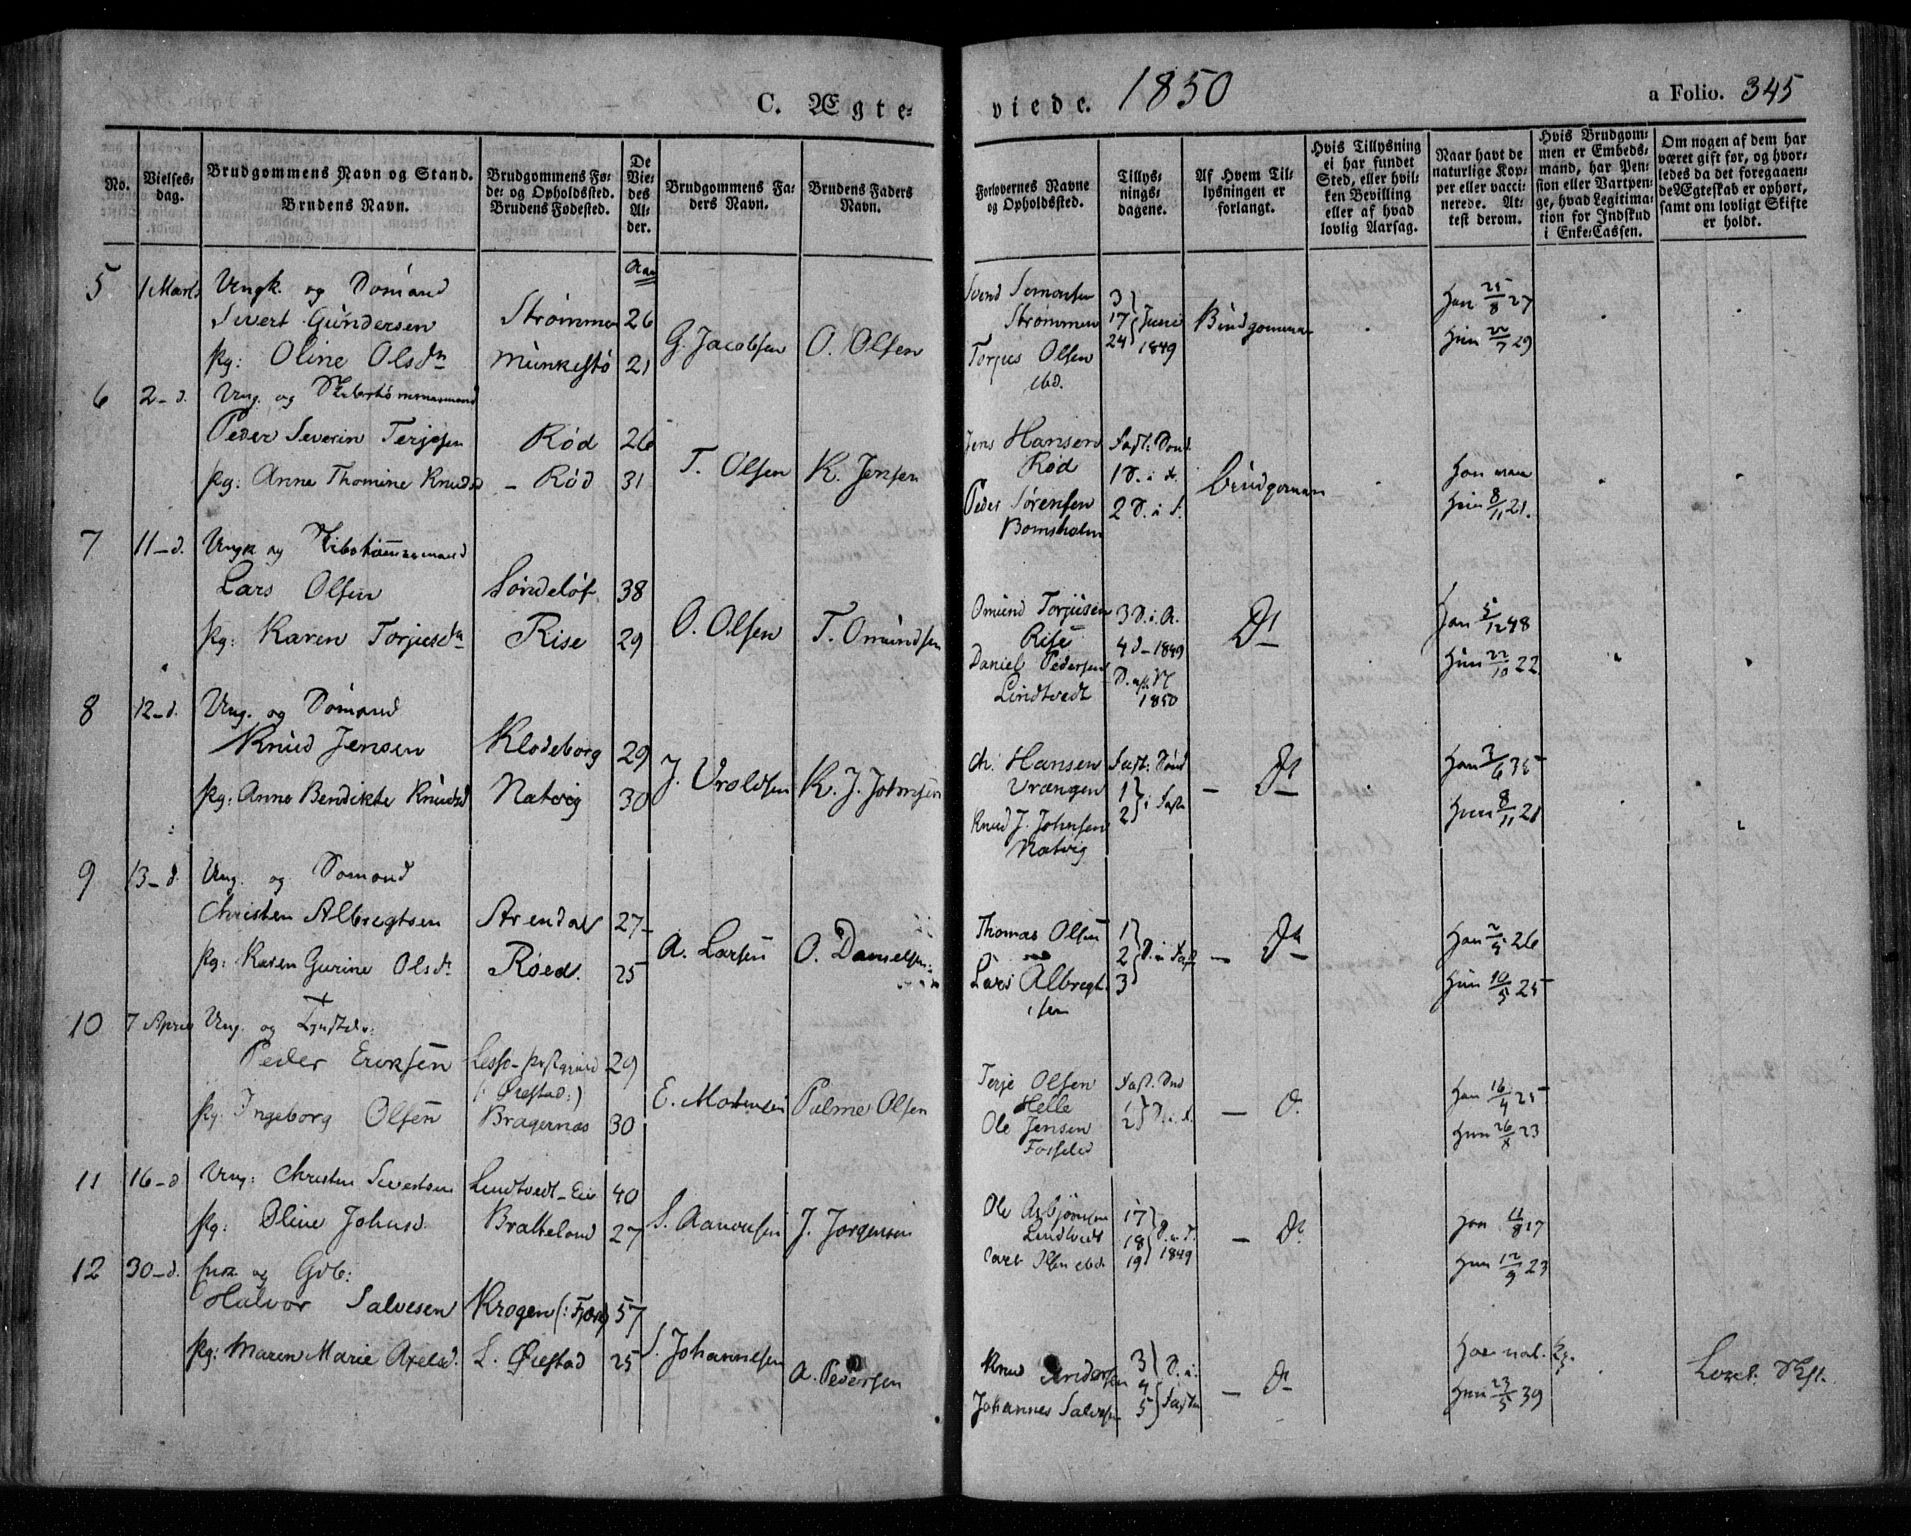 C. Ægte-
viede. 1850
a Folio. 345
No.
Vielses-
dag.
Brudgommens Navn og Stand.
Brudens Navn.
Brudgommens Fø-
de- og Opholdssted.
Brudens Fødested.
De
Vie-
des
Al-
der.
Brudgommens Fa-
ders Navn.
Brudens Faders
Navn.
Forlovernes Navne
og Opholdssted.
Tillys-
nings-
dagene.
Af Hvem Til-
lysningen er
forlangt.
Hvis Tillysning
ei har fundet
Sted, eller hvil-
ken Bevilling
eller af hvad
lovlig Aarsag.
Naar havt de
naturlige Kop-
per eller vacci-
nerede. At-
test derom.
Hvis Brudgom-
men er Embeds-
mand, har Pen-
sion eller Vartpen-
ge, hvad Legitima-
tion for Indskud
i Enke-Cassen.
Om nogen af dem har
været gift før, og hvor-
ledes da det foregaaen-
de Ægteskab er ophørt,
samt om lovligt Skifte
er holdt.
Aar
5 1 Marts Ungk. og Sømand
Sivert Gundersen Strømmen 26
Pg: Oline Olsdn Munkestø 21
G. Jacobsen O. Olsen
Svend Simonsen
Strømmen
Torjus Olsen
ebd.
3
17 Juni
24 1849
Brudgommen
Han 25/8 27
Hun 22/7 29
6 2 - d. Ung. og Skibstømmermand
Peder Severin Terjesen Rød 26
Pg: Anne Thomine Knudsd - Rød 31
T. Olsen K. Jensen
Jens Hansen
Rød
Peder Sørensen
Bomsholm
Fast. Sønd.
1 S. i F.
2 S. i F.
Brudgommen
Hun 8/11 21.
7 11 - d. Ungk og Skibstømmermand
Lars Olsen Søndeløf 38
Pg: Karen Torjusdn Rise 29
O. Olsen T. Omundsen
Omund Torjusen
Rise
Daniel Pedersen
Lindtvedt
3 S. i A.
4 d - 1849
1850
Do
Han 5/12 48
Hun 22/10 22
8 12 - d. Ung. og Sømand
Knud Jensen Klodeborg 29
Pg: Anne Bendikte Knudsd Natvig 30
J. Vroldsen K. J. Johnsen
Ch. Hansen
Vrængen
Knud J. Johnsen
Natvig
Fast. Sønd
1
2 i Fast
- Do
Han 3/6 35
Hun 8/11 21
9 13 - d. Ung. og Sømand
Christen Albregtsen Arendal 27
Pg: Karen Gurine Olsdr Røed. 25
A. Larsen O. Danielsen
Thomas Olsen
Lars Albregt-
sen
1
2 S. i Fast
3
- Do
Han 2/5 26
Hun 10/5 25
10 7 April Ung. og
Peder Eriksen 29
(: Øiestad :)
Pg. Ingeborg Olsen Bragernæs 30
E. Mortensen Palme Olsen
Terje Olsen
Helle
Ole Jensen
Fast. Snd
1
2 S. i F.
- D.
Han 16/4 25
Hun 26/8 23
11 16 - d Ung: Christen Sivertsen Lindtvedt - Eie 40
Pg: Oline Johnsd. Bratteland 27
S. Aanonsen J. Jørgensen
Ole Asbjørnsen
Lindtvedt
17
18
19 1849
- Do
Han 11/8 17
Hun 12/9 23
12 30 - d. Enk og Gdb:
Halvor Salvesen Krogen (: Fjære) 57
Pg: Maren Marie Axelsd. L. Øiestad 25
S. Johannesen A. Pedersen
Knud Andersen
Johannes Salvesen
3
4
5 S. i Fasten
- Do
Han nat. K.
Hun 23/5 39